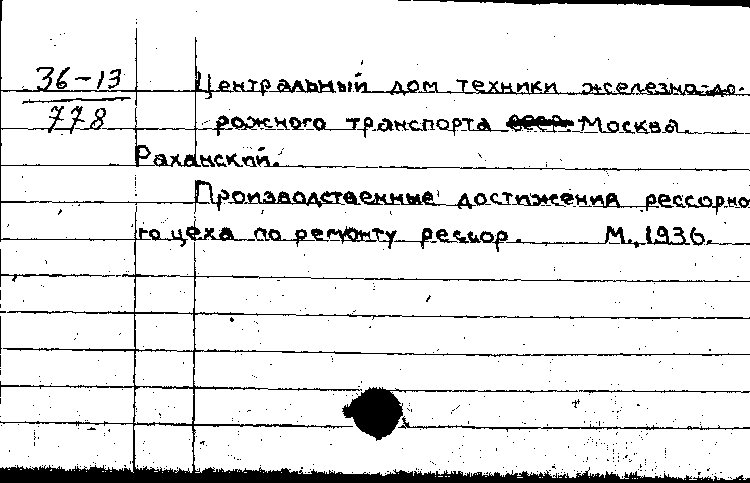 36-13
778
Центральный дом техники железно-до-
рожного транспорта Москва.
Раханский.
Производственные достижения рессорно
го цеха по ремонту рессор. М., 1936.